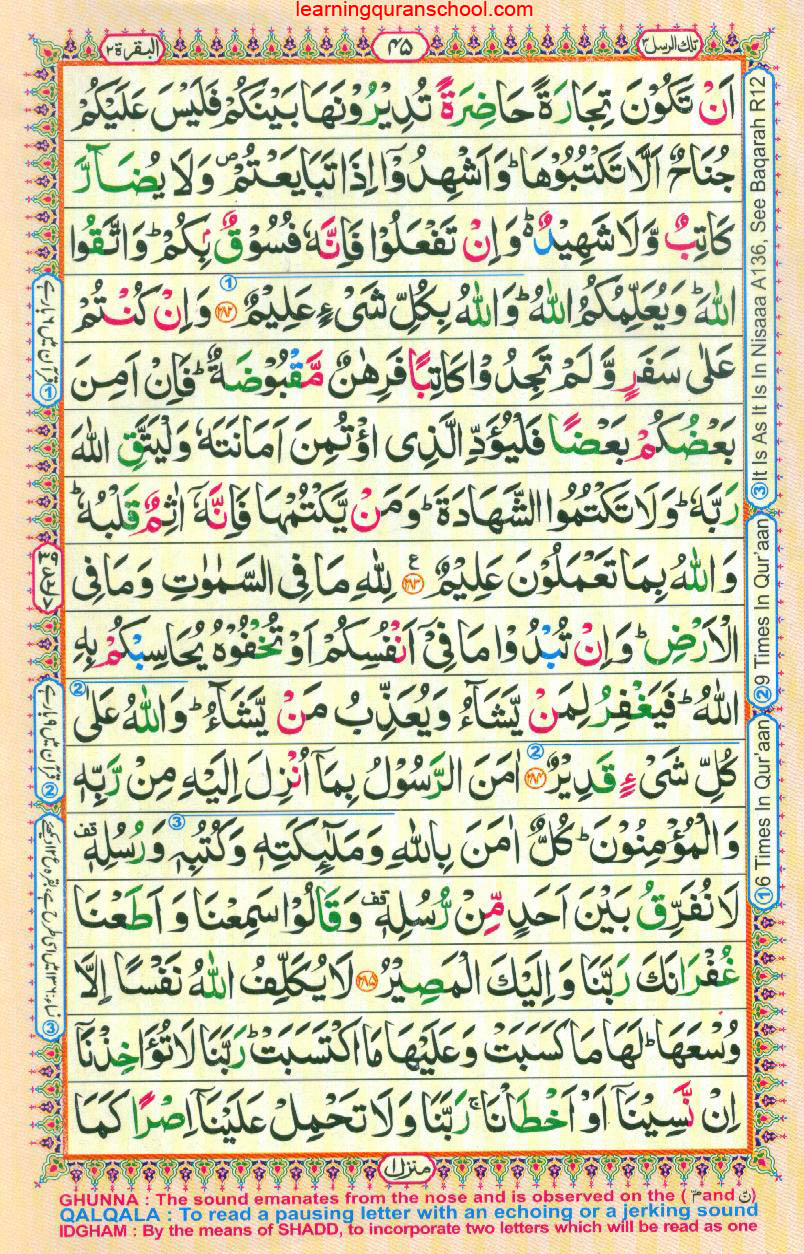 learningquranschool.com
البقرة ٢
۴۵
تلك الرسل ٣
اَنْ تَكُوْنَ تِجَارَةً حَاضِرَةً تُدِيْرُوْنَهَا بَيْنَكُمْ فَلَيْسَ عَلَيْكُمْ
جُنَاحٌ اَلَّا تَكْتُبُوْهَا ؕ وَاَشْهِدُوْۤا اِذَا تَبَايَعْتُمْ ۪ وَلَا يُضَآرَّ
كَاتِبٌ وَّلَا شَهِيْدٌ ؕ۬ وَاِنْ تَفْعَلُوْا فَاِنَّهٗ فُسُوْقٌۢ بِكُمْ ؕ وَاتَّقُوا
اللّٰهَ ؕ وَيُعَلِّمُكُمُ اللّٰهُ ؕ وَاللّٰهُ بِكُلِّ شَىْءٍ عَلِيْمٌ ﴿۲۸۲﴾ وَاِنْ كُنْتُمْ
عَلٰى سَفَرٍ وَّلَمْ تَجِدُوْا كَاتِبًا فَرِهٰنٌ مَّقْبُوْضَةٌ ؕ فَاِنْ اَمِنَ
بَعْضُكُمْ بَعْضًا فَلْيُؤَدِّ الَّذِى اؤْتُمِنَ اَمَانَتَهٗ وَلْيَتَّقِ اللّٰهَ
رَبَّهٗ ؕ وَلَا تَكْتُمُوا الشَّهَادَةَ ؕ وَمَنْ يَّكْتُمْهَا فَاِنَّهٗۤ اٰثِمٌ قَلْبُهٗ ؕ
وَاللّٰهُ بِمَا تَعْمَلُوْنَ عَلِيْمٌ ﴿۲۸۳﴾ ع لِلّٰهِ مَا فِى السَّمٰوٰتِ وَمَا فِى
الْاَرْضِ ؕ وَاِنْ تُبْدُوْا مَا فِىْۤ اَنْفُسِكُمْ اَوْ تُخْفُوْهُ يُحَاسِبْكُمْ بِهِ
اللّٰهُ ؕ فَيَغْفِرُ لِمَنْ يَّشَآءُ وَيُعَذِّبُ مَنْ يَّشَآءُ ؕ وَاللّٰهُ عَلٰى
كُلِّ شَىْءٍ قَدِيْرٌ ﴿۲۸۴﴾ اٰمَنَ الرَّسُوْلُ بِمَاۤ اُنْزِلَ اِلَيْهِ مِنْ رَّبِّهٖ
وَالْمُؤْمِنُوْنَ ؕ كُلٌّ اٰمَنَ بِاللّٰهِ وَمَلٰٓئِكَتِهٖ وَكُتُبِهٖ وَرُسُلِهٖ قف
لَا نُفَرِّقُ بَيْنَ اَحَدٍ مِّنْ رُّسُلِهٖ قف وَقَالُوْا سَمِعْنَا وَاَطَعْنَا
غُفْرَانَكَ رَبَّنَا وَاِلَيْكَ الْمَصِيْرُ ﴿۲۸۵﴾ لَا يُكَلِّفُ اللّٰهُ نَفْسًا اِلَّا
وُسْعَهَا ؕ لَهَا مَا كَسَبَتْ وَعَلَيْهَا مَا اكْتَسَبَتْ ؕ رَبَّنَا لَا تُؤَاخِذْنَاۤ
اِنْ نَّسِيْنَاۤ اَوْ اَخْطَاْنَا ۚ رَبَّنَا وَلَا تَحْمِلْ عَلَيْنَاۤ اِصْرًا كَمَا
منزل ١
③ It Is As It Is In Nisaaa A136, See Baqarah R12
② 9 Times In Qur'aan
① 6 Times In Qur'aan
① قرآن میں ٦ بار ہے
② قرآن میں ٩ بار ہے
GHUNNA : The sound emanates from the nose and is observed on the ( مّ and نّ)
QALQALA : To read a pausing letter with an echoing or a jerking sound
IDGHAM : By the means of SHADD, to incorporate two letters which will be read as one